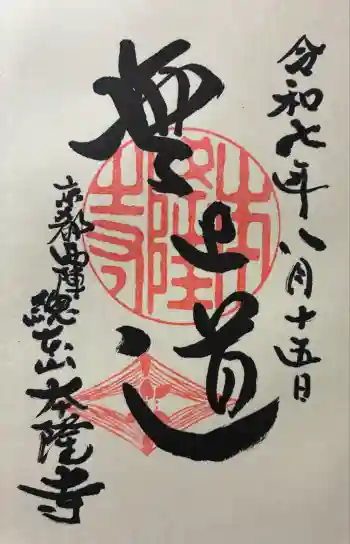 令和七年八月十五日
無上道
京都西陣
總本山本隆寺
本隆寺